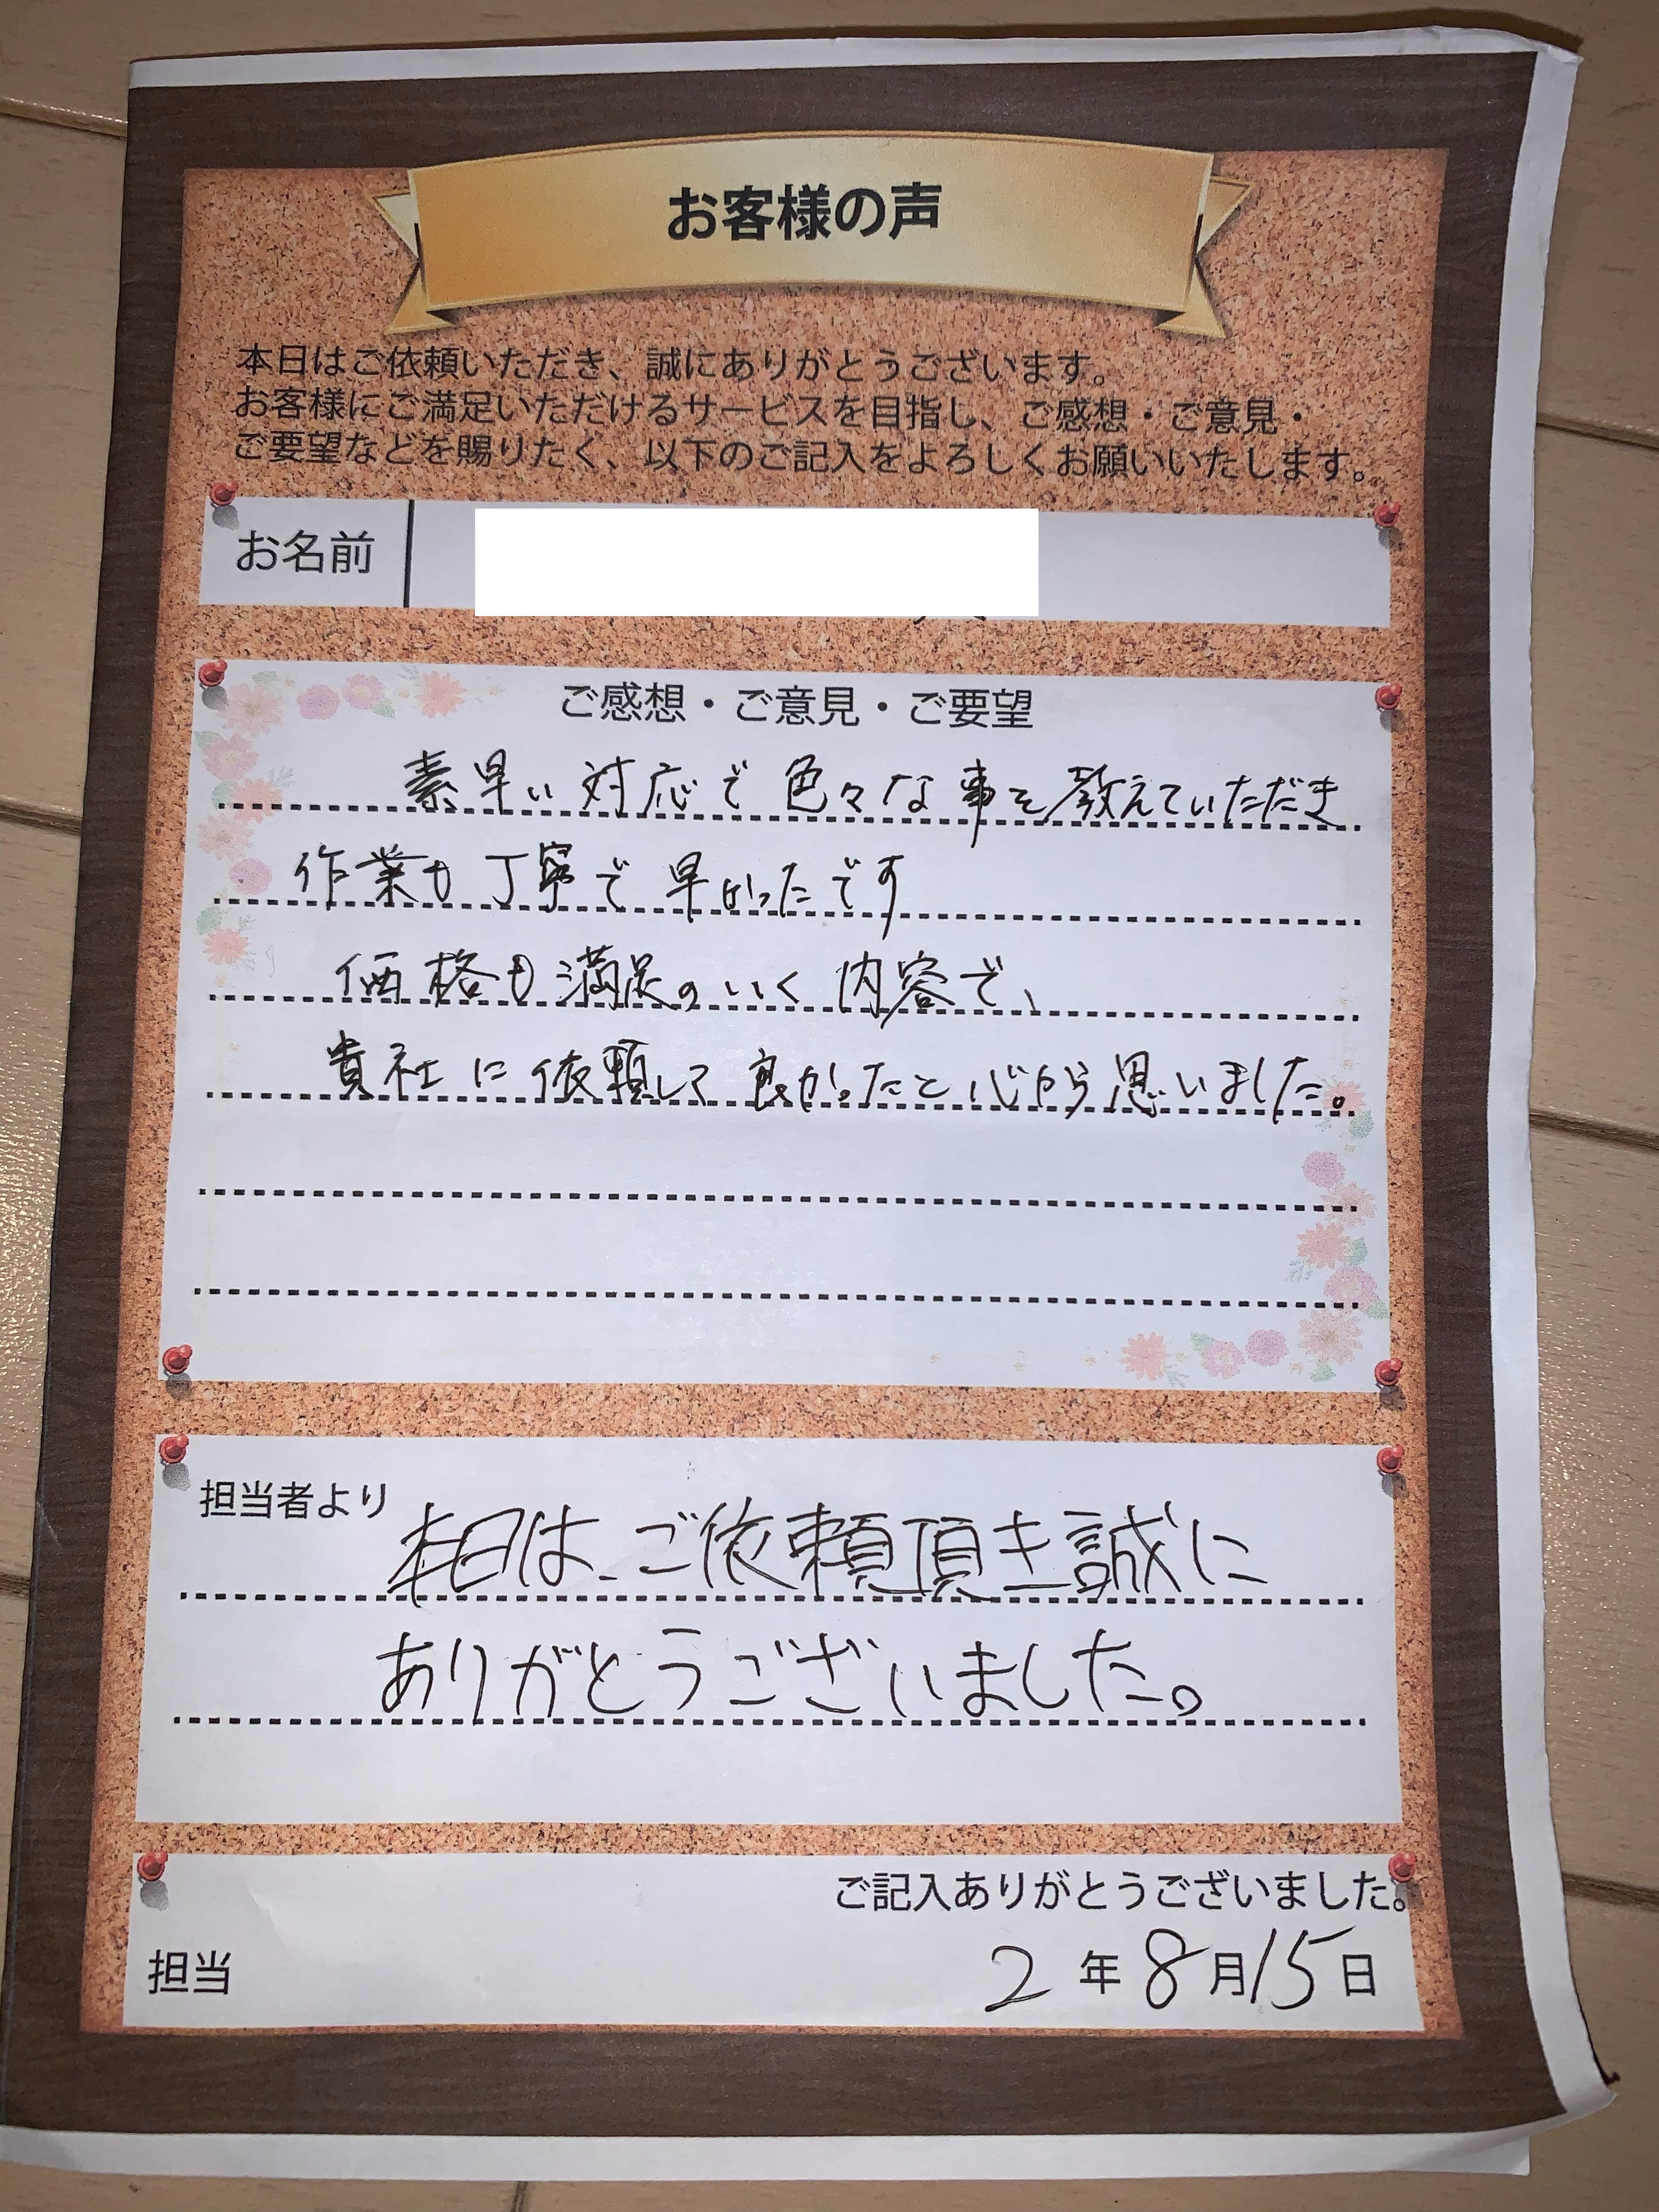 お客様の声
本日はご依頼いただき、誠にありがとうございます。
お客様にご満足いただけるサービスを目指し、ご感想・ご意見・
ご要望などを賜りたく、以下のご記入をよろしくお願いいたします。
お名前
ご感想・ご意見・ご要望
素早い対応で色々な事を教えていただき
作業も丁寧で早かったです
価格も満足のいく内容で、
貴社に依頼して良かったと心から思いました。
担当者より
本日は、ご依頼頂き誠に
ありがとうございました。
ご記入ありがとうございました。
担当
2年8月15日